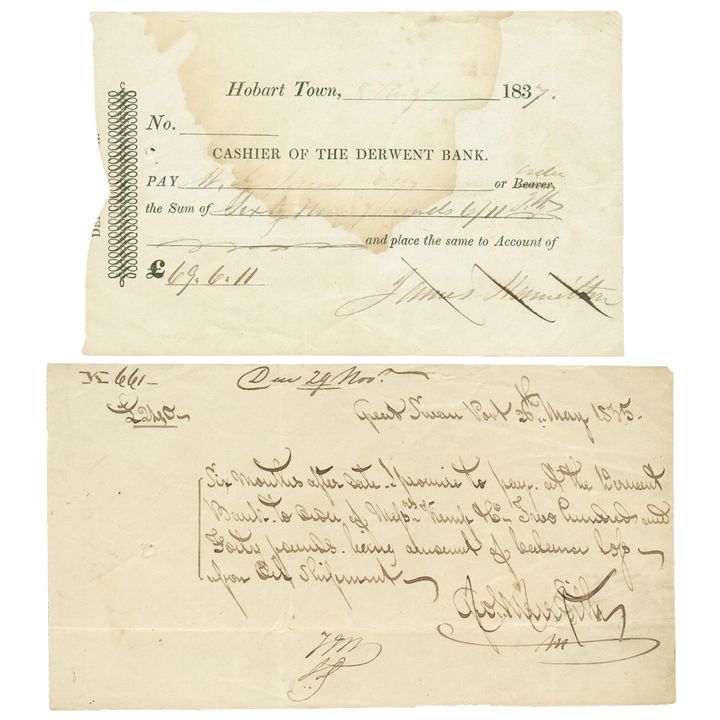 Hobart Town, 8 1837.
No.
CASHIER OF THE DERWENT BANK.
PAY or Bearer, order
the Sum of Sixty Nine pounds 6/11
and place the same to Account of
£ 69. 6. 11
James Hamilton
No 661
Due 29 Nov.r
£240
Great Swan Port 26th May 1835
Six months after date I promise to pay at the Derwent
Bank to order of Mess.rs Kemp & Co Two hundred and
Forty pounds being amount of balance loss
upon Oil Shipment